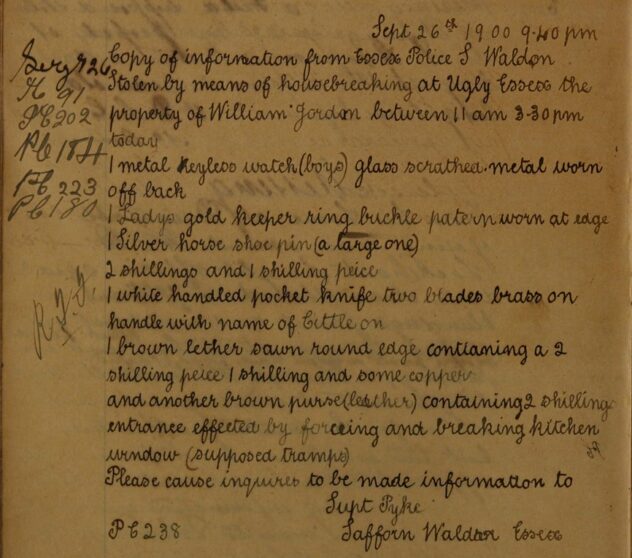 Sept 26th 1900 9.40 pm
Serg 726
Copy of information from Essex Police S Waldon
Stolen by means of housebreaking at Ugly Essex the
PC 91
property of William Jordon between 11 am 3-30 pm
PC 202
today
PC 184
1 metal Keyless watch (boys) glass scrathed. metal worn
off back
PC 223
PC 180
1 Ladys gold keeper ring buckle patern worn at edge
1 Silver horse shoe pin (a large one)
2 shillings and 1 shilling peice
1 white handled pocket knife two blades brass on
handle with name of Cittle on
1 brown lether sawn round edge contianing a 2
shilling peice 1 shilling and some copper
and another brown purse (leather) containing 2 shilling
entrance effected by forceing and breaking kitchen
window (supposed tramps)
Please cause inquires to be made information to
Supt Pyke
PC 238
Safforn Walden Essex